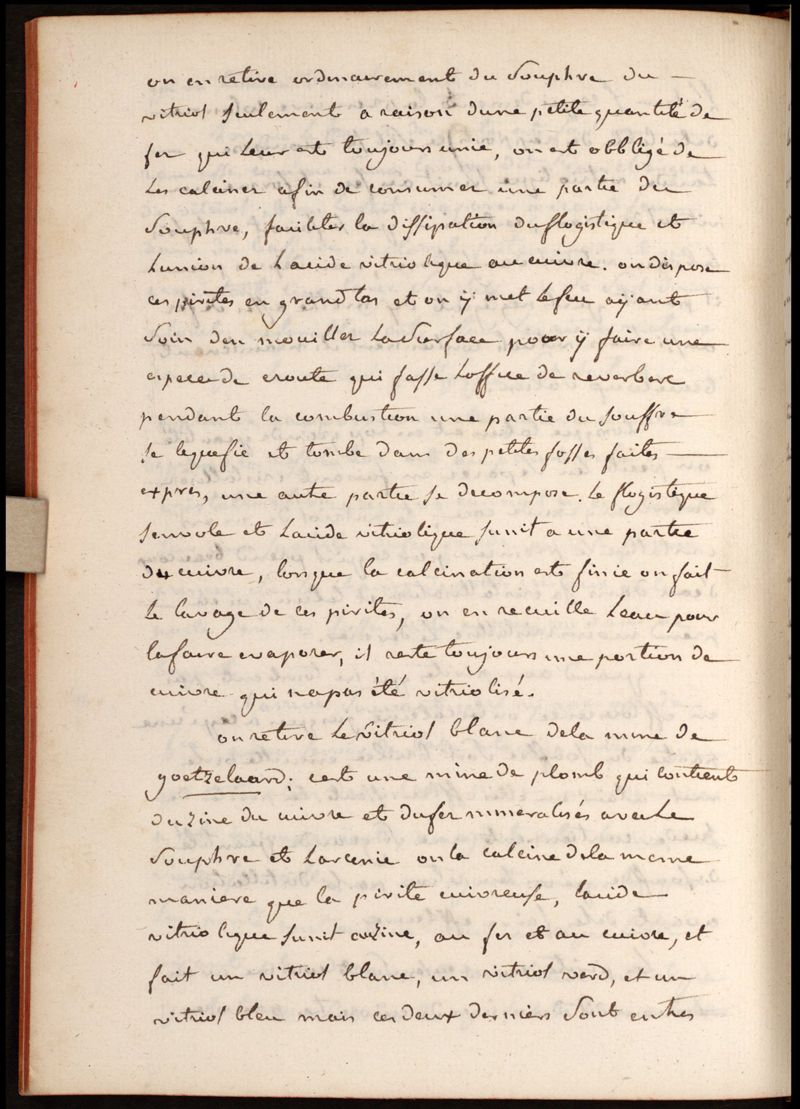 on en retire ordinairement du Souphre du —
vitriol seulement a raison dune petite quantité de
fer qui leur est toujours unie, on est obbligé de
les calciner afin de consumer une partie du
Souphre, faciliter la dissipation duflogistique et
Lunion de Lacide vitriolique au cuivre. on dispose
ces pirites en grand tas et on ÿ met le feu aÿant
Soin den mouiller La Surface pour ÿ faire une
espece de croute qui fasse Loffice de reverbere
pendant la combustion une partie du souffre
se liquefie et tombe dans des petites fosses faites —
expres, une autre partie se decompose. Le flogistique
senvole et Lacide vitriolique sunit a une partie
du cuivre, lorsque la calcination est finie on fait
le lavage de ces pirites, on en recuille Leau pour
lafaire evaporer, il reste toujours une portion de
cuivre qui napas été vitriolisé.
on retire le Vitriol blanc dela mine de
goetzelaard; cest une mine de plomb qui contient
du zinc du cuivre et dufer mineralisés avec Le
Souphre et Larcenic on la calcine dela meme
maniere que la pirite cuivreuse, lacide
vitriolique sunit auzinc, au fer et au cuivre, et
fait un vitriol blanc, un vitriol verd, et un
vitriol bleu mais ces deux derniers Sont entres